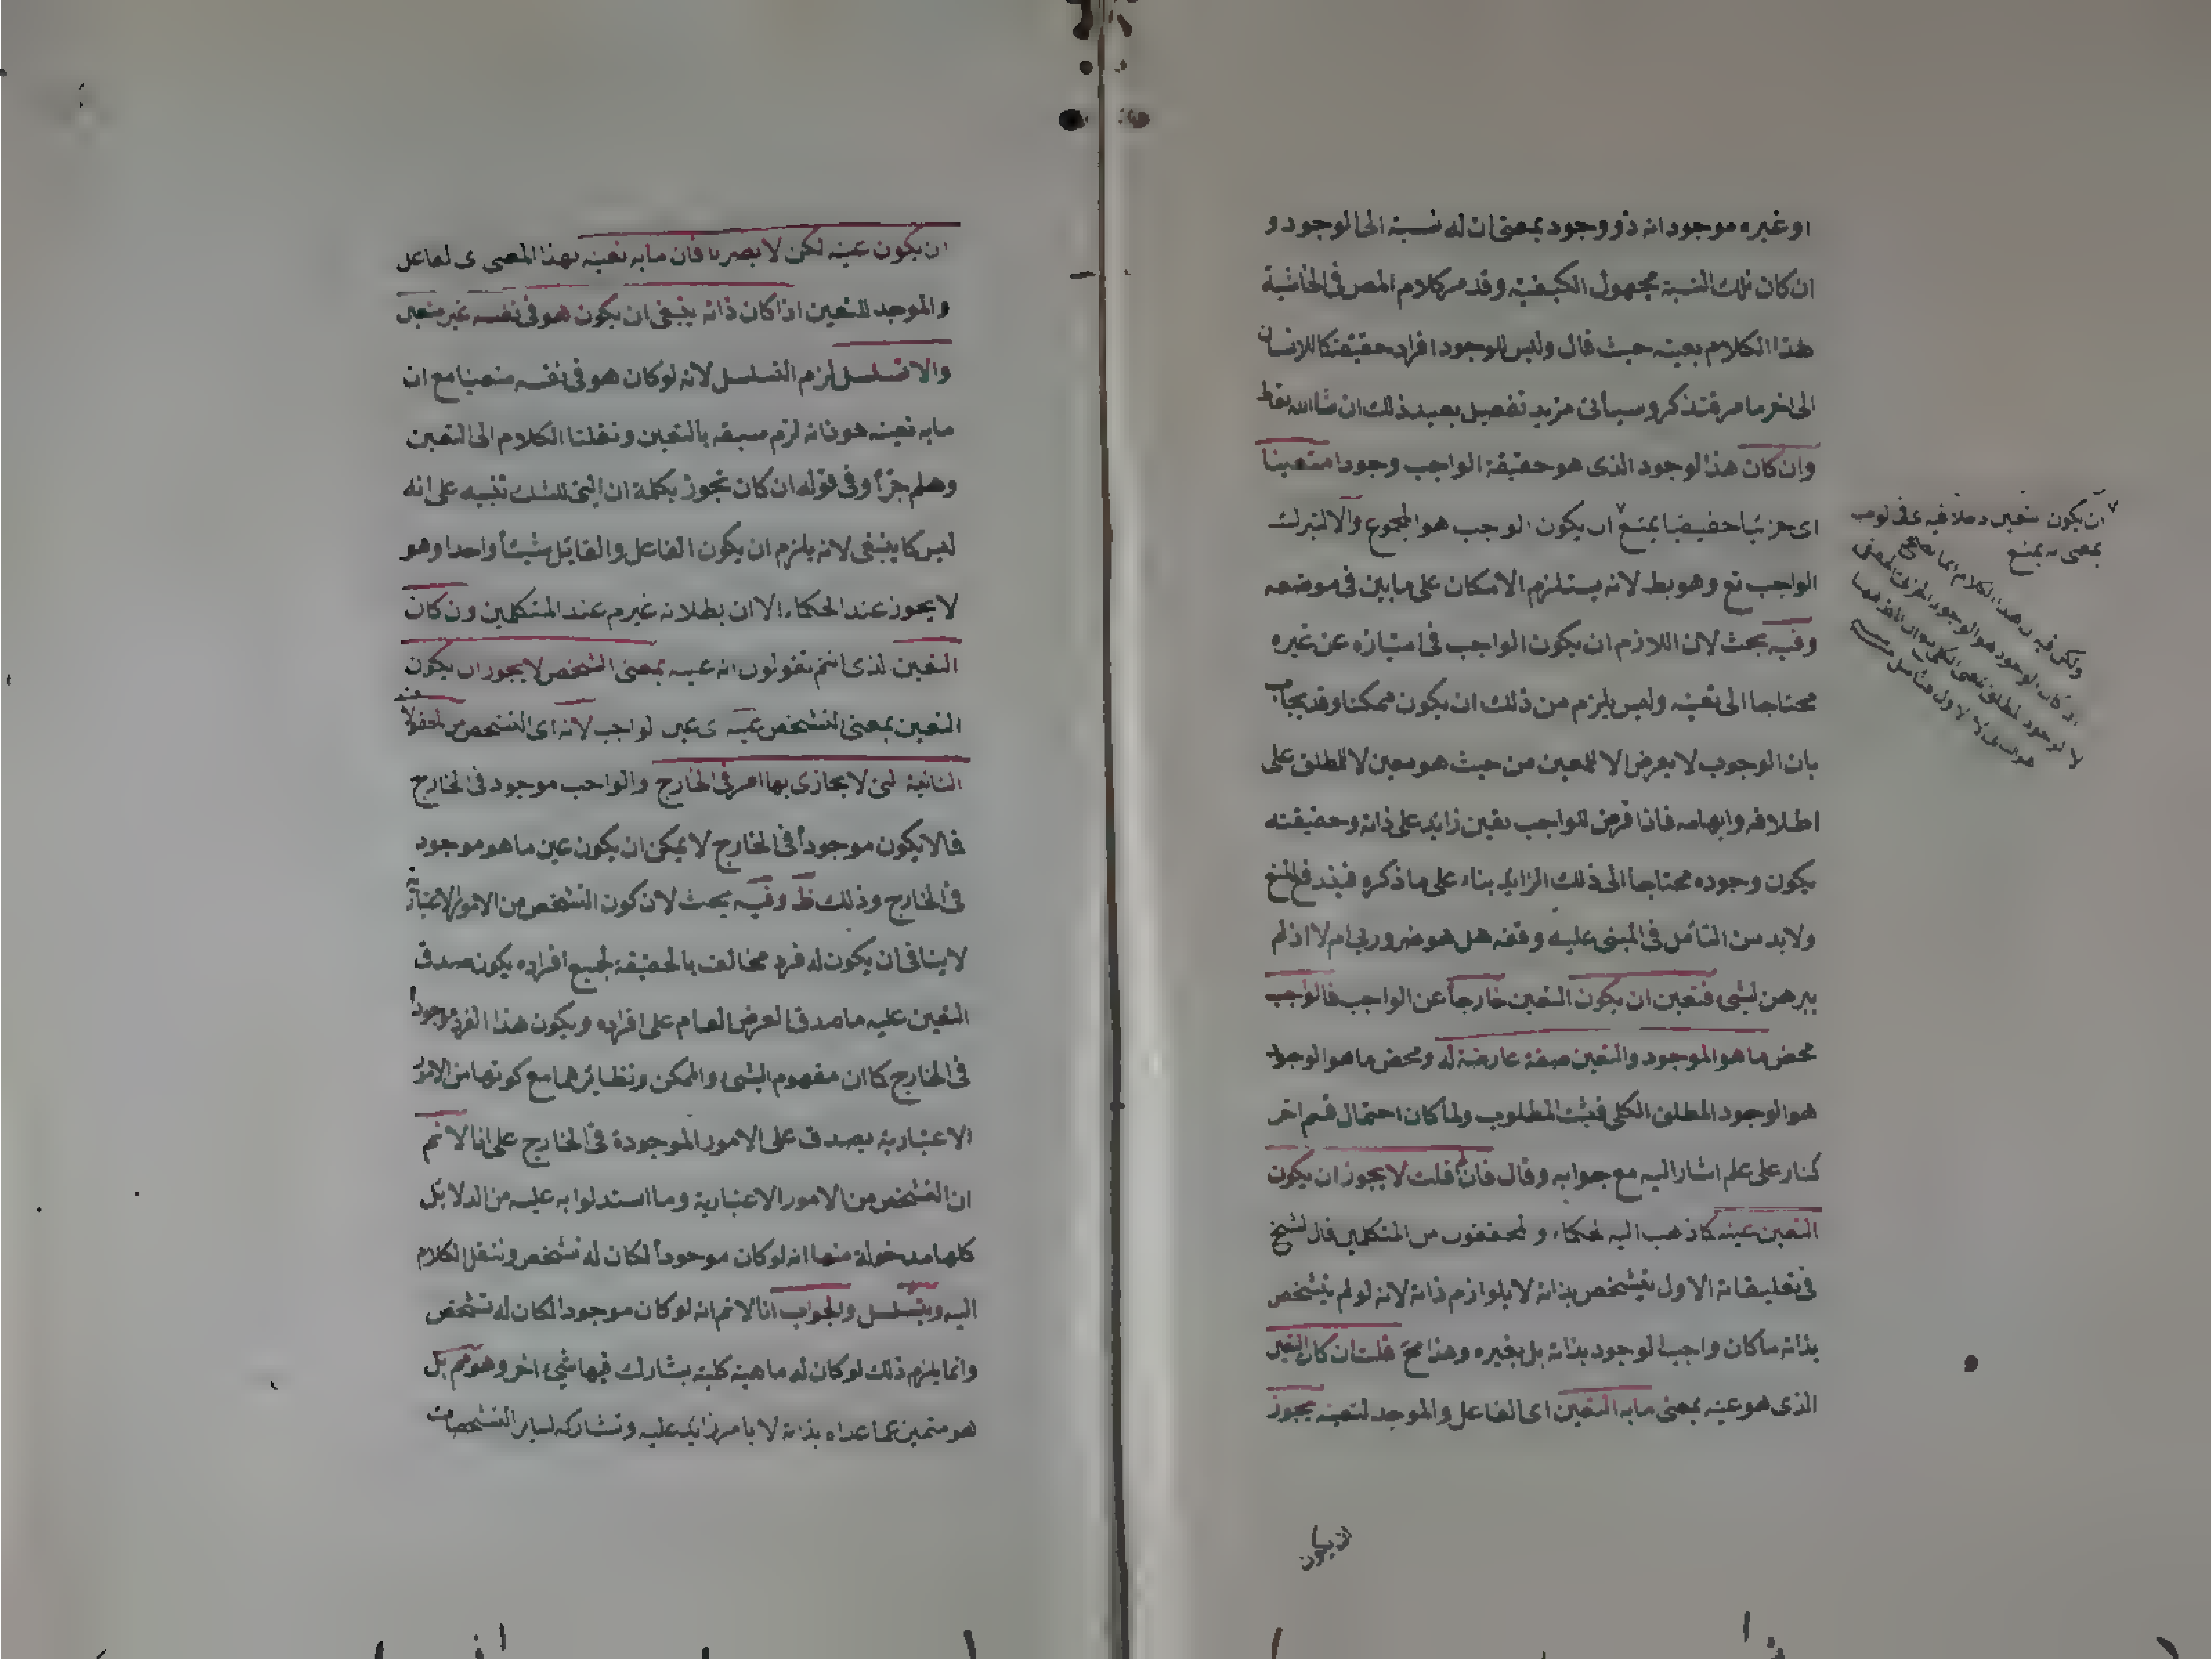 او غيره موجود انه ذو وجود بمعنى ان له نسبة الى الوجود و
ان كان تلك النسبة مجهول الكيفية وقد مر كلام المص في الحاشية
هذا الكلام بعينه حيث قال وليس للوجود افراد حقيقة كالانسان
الى اخر ما مر فتذكر وسيأتي مزيد تفصيل بعيد ذلك ان شا الله تعا
وان كان هذا الوجود الذى هو حقيقة الواجب وجودا متعينا
اى جزئيا حقيقيا يمتنع ان يكون الوجب هو المجموع والا لتركب
الواجب تع وهو بط لانه يستلزم الامكان على ما بين في موضعه
وفيه بحث لان اللازم ان يكون الواجب في امتيازه عن غيره
محتاجا الى تعينه وليس يلزم من ذلك ان يكون ممكنا وقد يجاب
بان الوجوب لا يعرض الا للمعين من حيث هو معين لا للمطلق على
اطلاقه وابهامه فاذا فرض للواجب تعين زايد على ذاته وحقيقته
يكون وجوده محتاجا الى ذلك الزايد بناء على ما ذكره فيندفع المنع
ولا بد من التأمل في المبنى عليه وفقه هل هو ضروري ام لا اذ لم
يبرهن لشى فتعين ان يكون التعين خارجا عن الواجب فالواجب
محض ما هو الموجود والتعين صفة عارضة له ومحض ما هو الوجود
هو الوجود المطلق الكلى فيثبت المطلوب ولما كان احتمال قسم اخر
كنار على علم اشار اليه مع جوابه وقال فان قلت لا يجوز ان يكون
التعين عينه كما ذهب اليه الحكاء والمحققون من المتكلمين قال الشيخ
في تعليقاته الاول يتشخص بذاته لا بلوازم ذاته لانه لو لم يتشخص
بذاته ما كان واجب الوجود بذاته بل بغيره وهذا مح قلت ان كان التعين
الذى هو عينه بمعنى ما به التعين اى الفاعل والموجد لتعينه يجوز
ان يكون
ان يكون عينه لكن لا يضرنا فان ما به تعينه بهذا المعنى اى الفاعل
والموجد للتعين اذا كان ذاته ينبغى ان يكون هو في نفسه غير متعين
والا تسلسل لزم التسلسل لانه لو كان هو في نفسه متعينا مع ان
ما به تعينه هو ذاته لزم سبقه بالتعين ونقلنا الكلام الى التعين
وهلم جرأ وفي قوله ان كان تجوز بكلمة ان التى للشك تنبيه على انه
ليس كا ينبغى لانه يلزم ان يكون الفاعل والقابل شيئأ واحدا وهو
لا يجوز عند الحكاء الا ان بطلانه غير م عند المتكلمين وان كان
التعين الذى انتم تقولون انه عينه بمعنى التشخص لا يجوز ان يكون
التعين بمعنى التشخص عينه اى عين الواجب لانه اى التشخص من المعقولا
الثانية التى لا يحاذى بها امر في الخارج والواجب موجود في الخارج
فما لا يكون موجودأ في الخارج لا يمكن ان يكون عين ما هو موجود
في الخارج وذلك ظ وفيه بحث لان كون التشخص من الامور الاعتبار
لا ينافى ان يكون له فرد مخالف بالحقيقة لجميع افراده يكون صدق
التعين عليه ما صدق العرض العام على افراده ويكون هذا الفرد موجودا
في الخارج كما ان مفهوم الشىء والممكن ونظائرهما مع كونها من الامور
الاعتبارية يصدق على الامور الموجودة في الخارج على انا لا نم
ان التشخص من الامور الاعتبارية وما استدلوا به عليه من الدلايل
كلها مدخولة منها انه لو كان موجودأ لكان له تشخص وننقل الكلام
اليه ويتسلسل والجواب انا لا نم انه لو كان موجودا لكان له تشخص
وانما يلزم ذلك لو كان له ماهية كلية يشارك فيها شىء اخر وهو مم بل
هو متميز عما عداه بذاته لا بامر زايد عليه وتشاركه لساير التشخصات